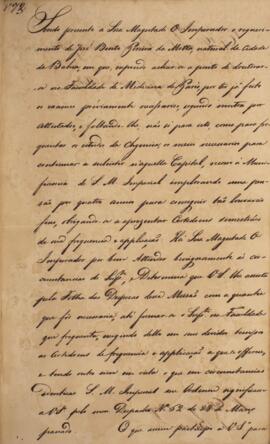 172.
Sendo presente a Sua Magestade O Imperador o requeri-
mento de José Bento da Motta, natural da Cidade
da Bahia, em que, expondo achar-se a ponto de doutorar-
se na Faculdade de Medicina de Pariz por ter já feito
os exames previamente
Attestados, e faltando-lhe, não só para este, como para fre-
quentar os estudos de Chymica, os meios necessarios para
continuar a subsistir n'aquella Capital, recorre á Muni-
ficencia de S. M. Imperial implorando uma pen-
são por quatro annos para conseguir tão louvaveis
fins, obrigando-se a apresentar Certidoens
de sua frequencia e applicação. Há Sua Magestade O
Imperador por bem Attender benignamente ás cir-
cunstancias do Supp.e, e Determina que V. S. lhe
pela Folha das Despezas dessa Missão com a quantia
que fôr necessaria, até formar-se o Supp.e na Faculdade
que frequenta, exigindo delle em seu devidos tempos
as Certidoens de frequencia e applicação a que se offerece,
e tendo outro sim em vista o que em circunstancias
identicas S. M. Imperial em Ordenou significar
a V. S. pelo meu Despacho N.º 52 de 28 de Março
passado.
O que assim participo a V. S. para